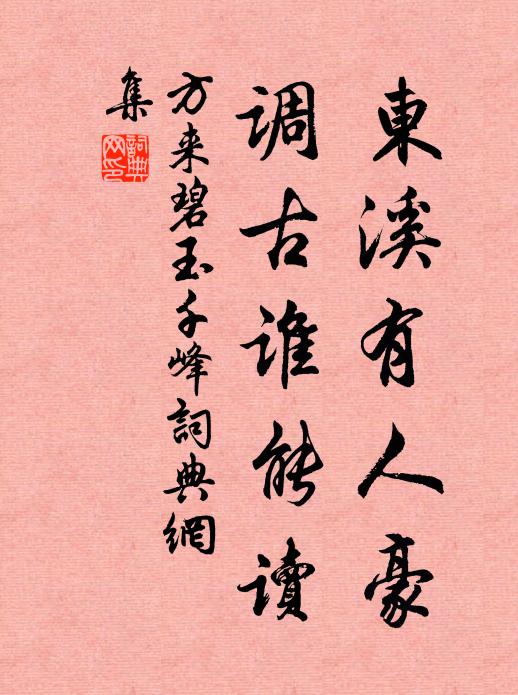 東溪有人豪
調古誰能讀
方来碧玉千峰詞典網
集
詞典
网印